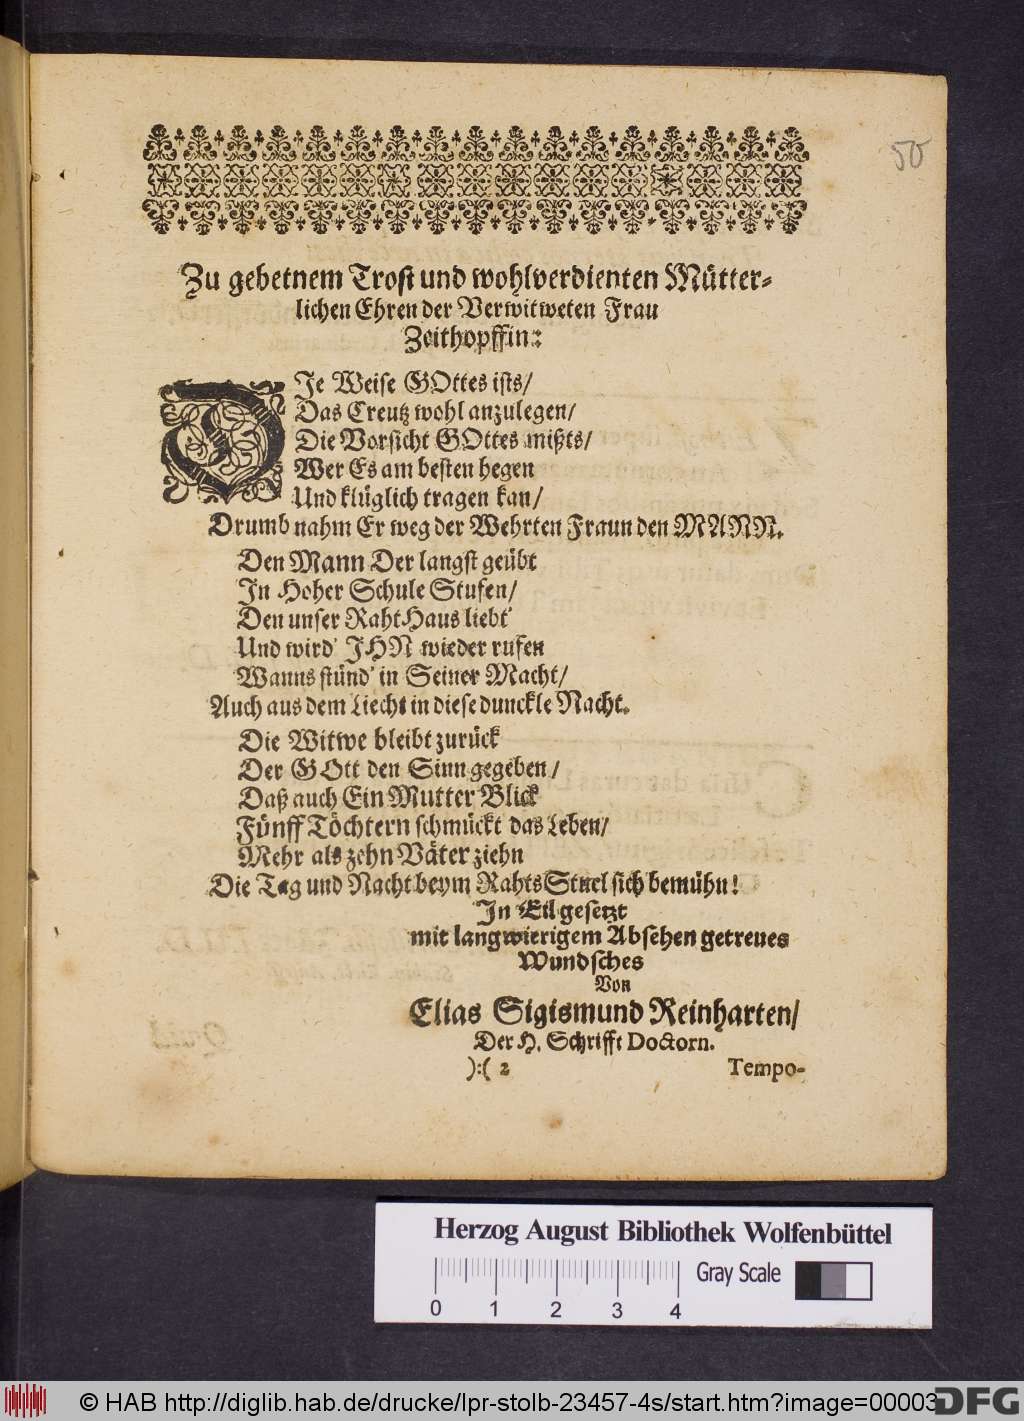 50
Zu gebetnem Trost und wohlverdienten Mütter-
lichen Ehren der Verwitweten Frau
Zeithopffin:
DIe Weise GOttes ists/
Das Creutz wohl anzulegen/
Die Vorsicht GOttes mißts/
Wer Es am besten hegen
Und klüglich tragen kan/
Drumb nahm Er weg der Wehrten Fraun den MANN.
Den Mann Der langst geübt
In Hoher Schule Stufen/
Den unser RahtHaus liebt'
Und wird' IHN wieder rufen
Wanns stünd' in Seiner Macht/
Auch aus dem Liecht in diese dunckle Nacht.
Die Witwe bleibt zurück
Der GOtt den Sinn gegeben/
Daß auch Ein Mutter Blick
Fünff Töchtern schmückt das Leben/
Mehr als zehn Väter ziehn
Die Tag und Nacht beym RahtsStuel sich bemühn!
In Eil gesetzt
mit langwierigem Absehen getreues
Wundsches
Von
Elias Sigismund Reinharten/
Der H. Schrifft Doctorn.
):( 2 Tempo-
Herzog August Bibliothek Wolfenbüttel
Gray Scale
0 1 2 3 4
© HAB http://diglib.hab.de/drucke/lpr-stolb-23457-4s/start.htm?image=00003
DFG